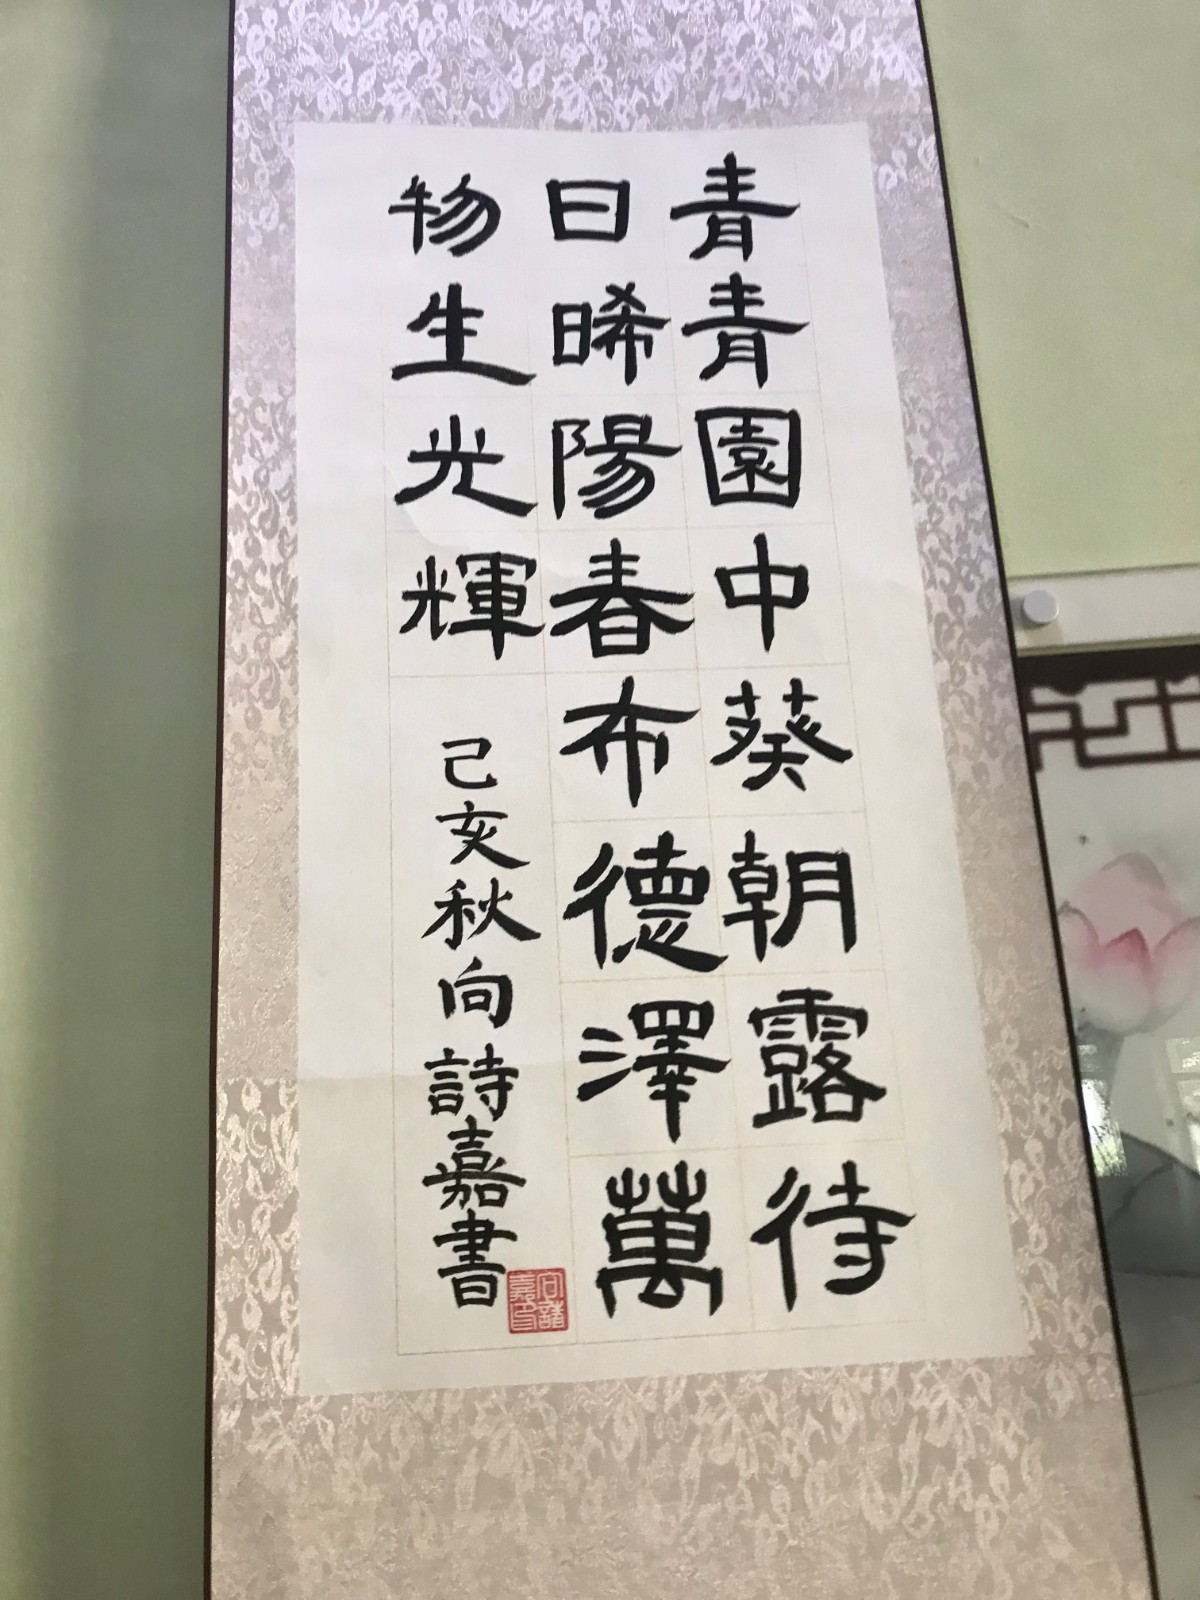 青青園中葵朝露待
日晞陽春布德澤萬
物生光輝
己亥秋向詩嘉書
向詩嘉印